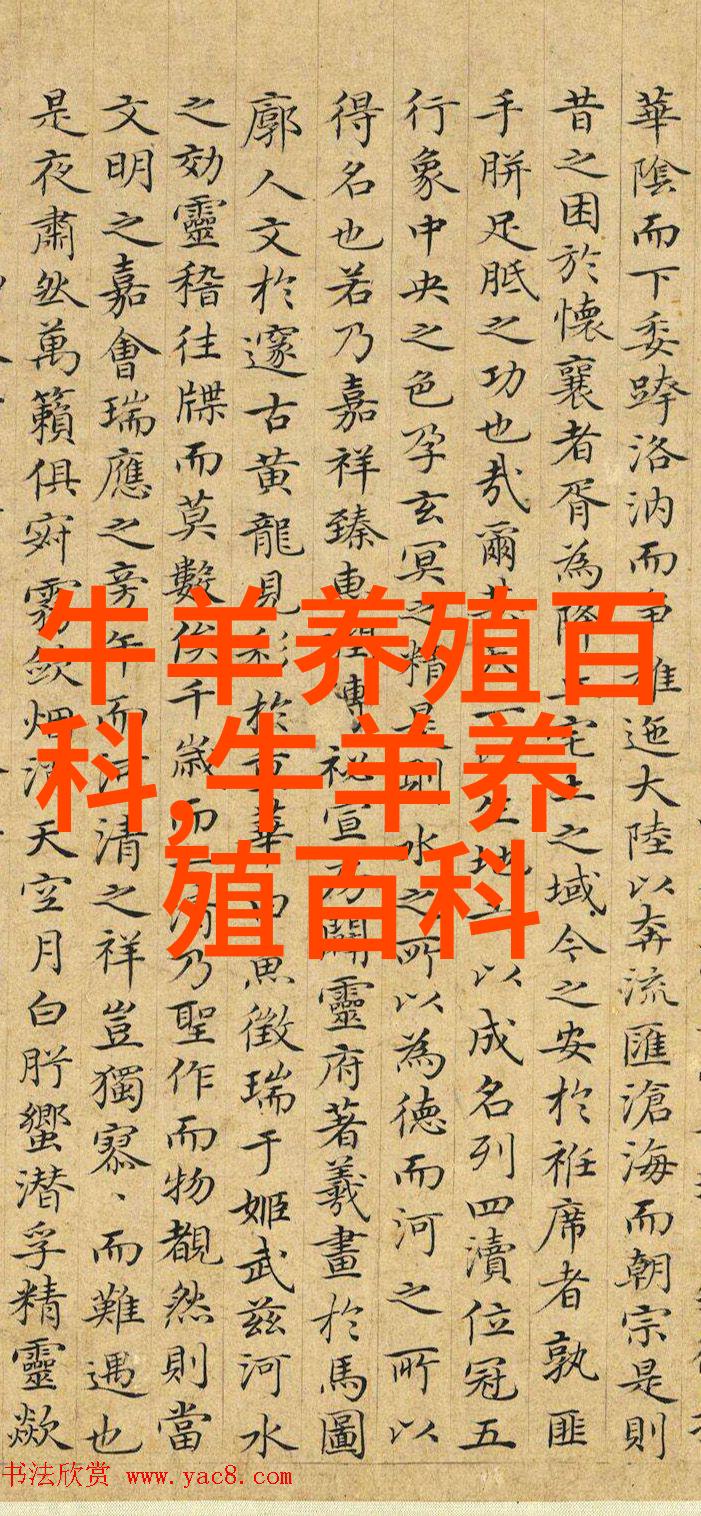 華陰而下委蹄洛汭而爭雄迤大陸以奔流匯滄海而朝宗是則
昔之困於懷襄者胥為降丘宅土之域今之安於袵席者孰匪
手胼足胝之功也哉爾其天一生地六以成名列四瀆位冠五
行象中央之色孕玄冥之精是則水之所以為德而河之所以
得名也若乃嘉祥臻祕宣為開靈府著羲畫於馬圖
廓人文於邃古黃龍見彩於重華白魚徵瑞于姬武茲河水
之効靈稽往牒而莫數俟千歲而一清乃聖作而物覩然則當
文明之嘉會瑞應之旁午而河清之祥豈獨寥、而難遇也
是夜肅然萬籟俱寂霧斂烟消天空月白肸蠁潛孚精靈歘
牛羊养殖百
科,牛羊养
殖百科
书法欣赏 www.yac8.com